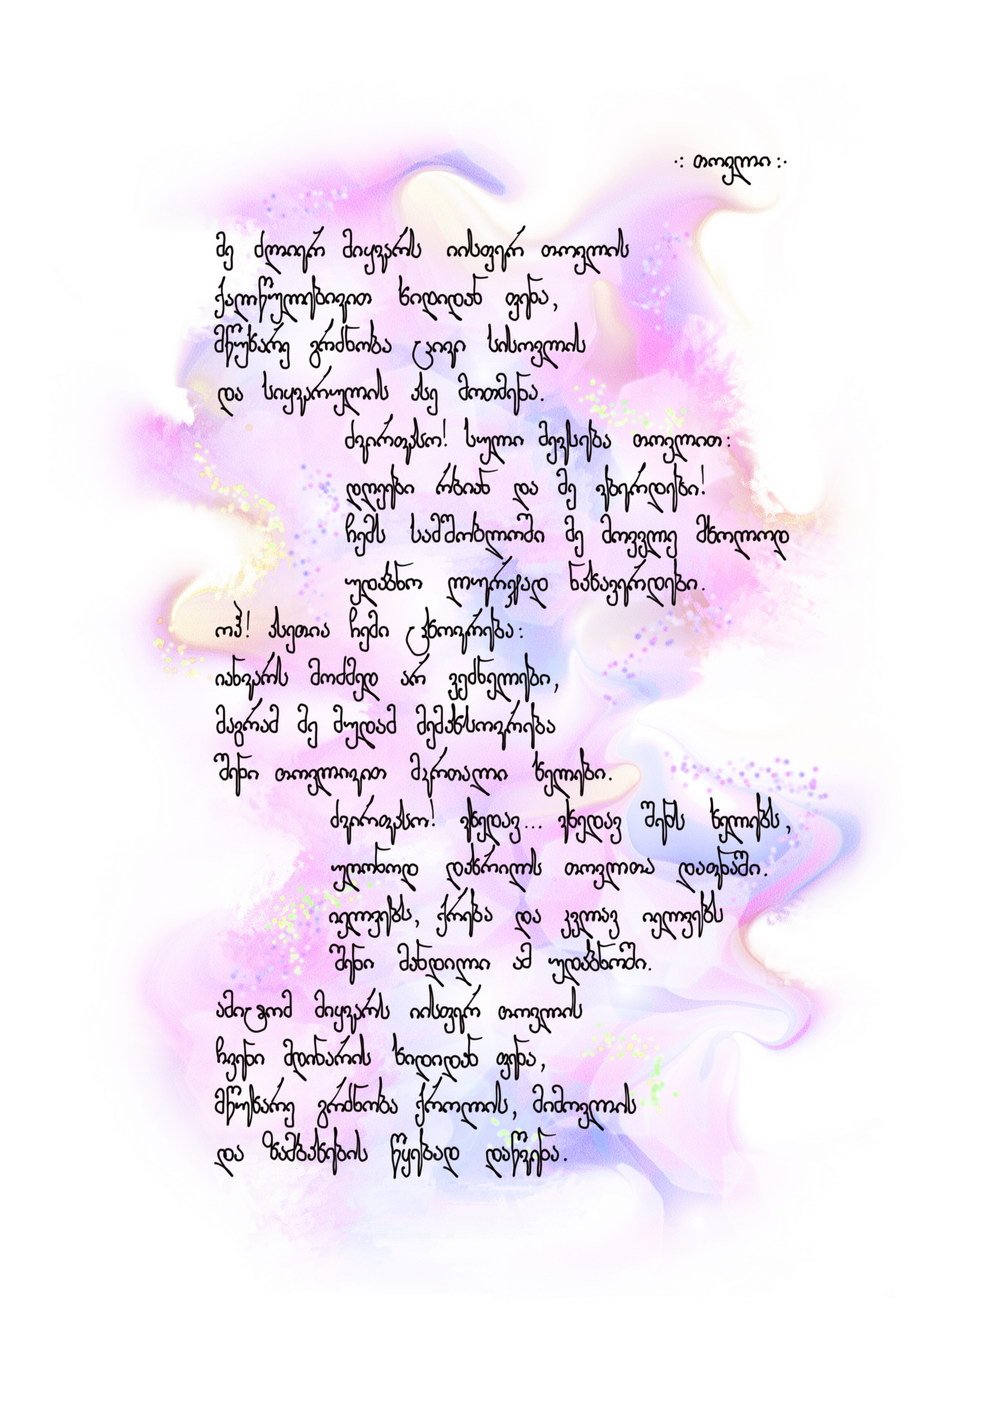 ·: თოვლი :·
მე ძლიერ მიყვარს იისფერ თოვლის
ქალწულებივით ხიდიდან ფენა,
მწუხარე გრძნობა ცივი სისოვლის
და სიყვარულის ასე მოთმენა.
ძვირფასო! სული მევსება თოვლით:
დღეები რბიან და მე ვბერდები!
ჩემს სამშობლოში მე მოვვლე მხოლოდ
უდაბნო ლურჯად ნახავერდები.
ოჰ! ასეთია ჩემი ცხოვრება:
იანვარს მოძმედ არ ვეძნელები,
მაგრამ მე მუდამ მემახსოვრება
შენი თოვლივით მკრთალი ხელები.
ძვირფასო! ვხედავ... ვხედავ შენს ხელებს,
უღონოდ დახრილს თოვლთა დაფნაში.
იელვებს, ქრება და კვლავ იელვებს
შენი მანდილი ამ უდაბნოში.
ამიტომ მიყვარს იისფერ თოვლის
ჩვენი მდინარის ხიდიდან ფენა,
მწუხარე გრძნობა ქროლის, მიმოვლის
და ზამბახების წყებად დაწვენა.